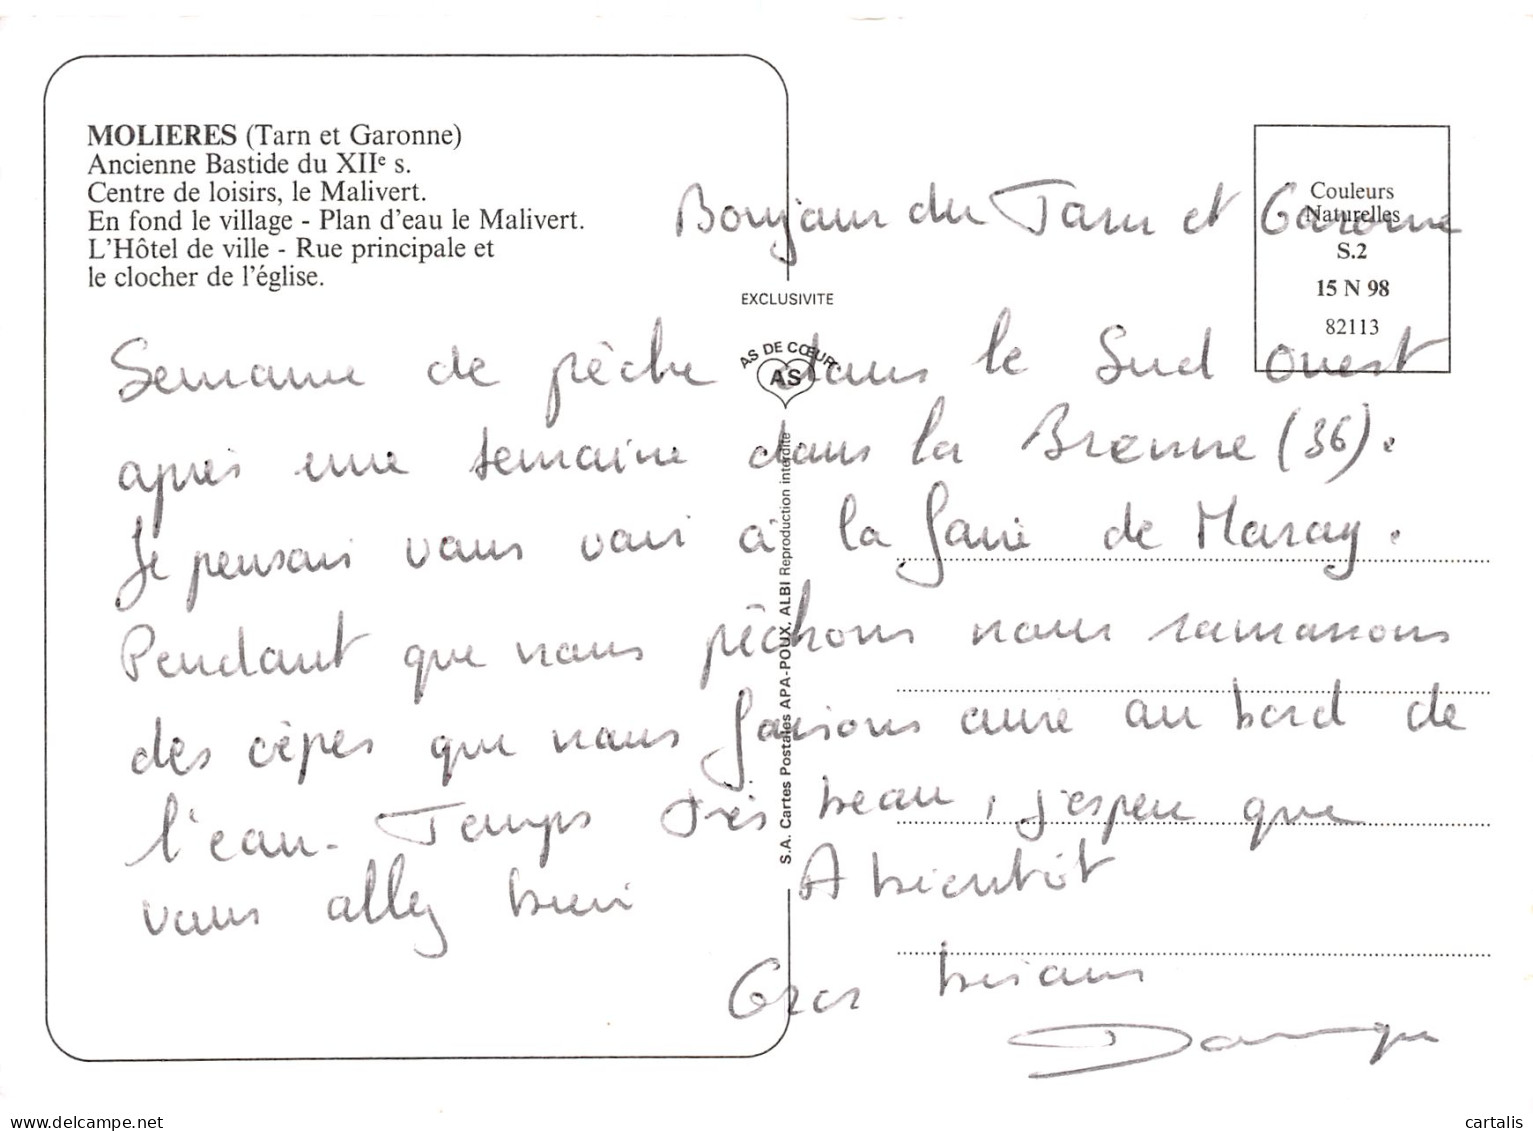 MOLIERES (Tarn et Garonne)
Ancienne Bastide du XIIe s.
Centre de loisirs, le Malivert.
En fond le village - Plan d'eau le Malivert.
L'Hôtel de ville - Rue principale et
le clocher de l'église.
Couleurs
Naturelles
S.2
15 N 98
82113
EXCLUSIVITE
AS DE CŒUR
AS
S.A. Cartes Postales APA-POUX, ALBI Reproduction interdite
Bonjour du Tarn et Garonne
Semaine de pêche dans le Sud ouest
après une semaine dans la Brenne (36).
Je pensais vous voir à la foire de Maray.
Pendant que nous pêchons nous ramassons
des cèpes que nous faisons cuire au bord de
l'eau. Temps très beau, j'espère que
vous allez bien A bientôt
Gros bisous
cartalis
delcampe.net